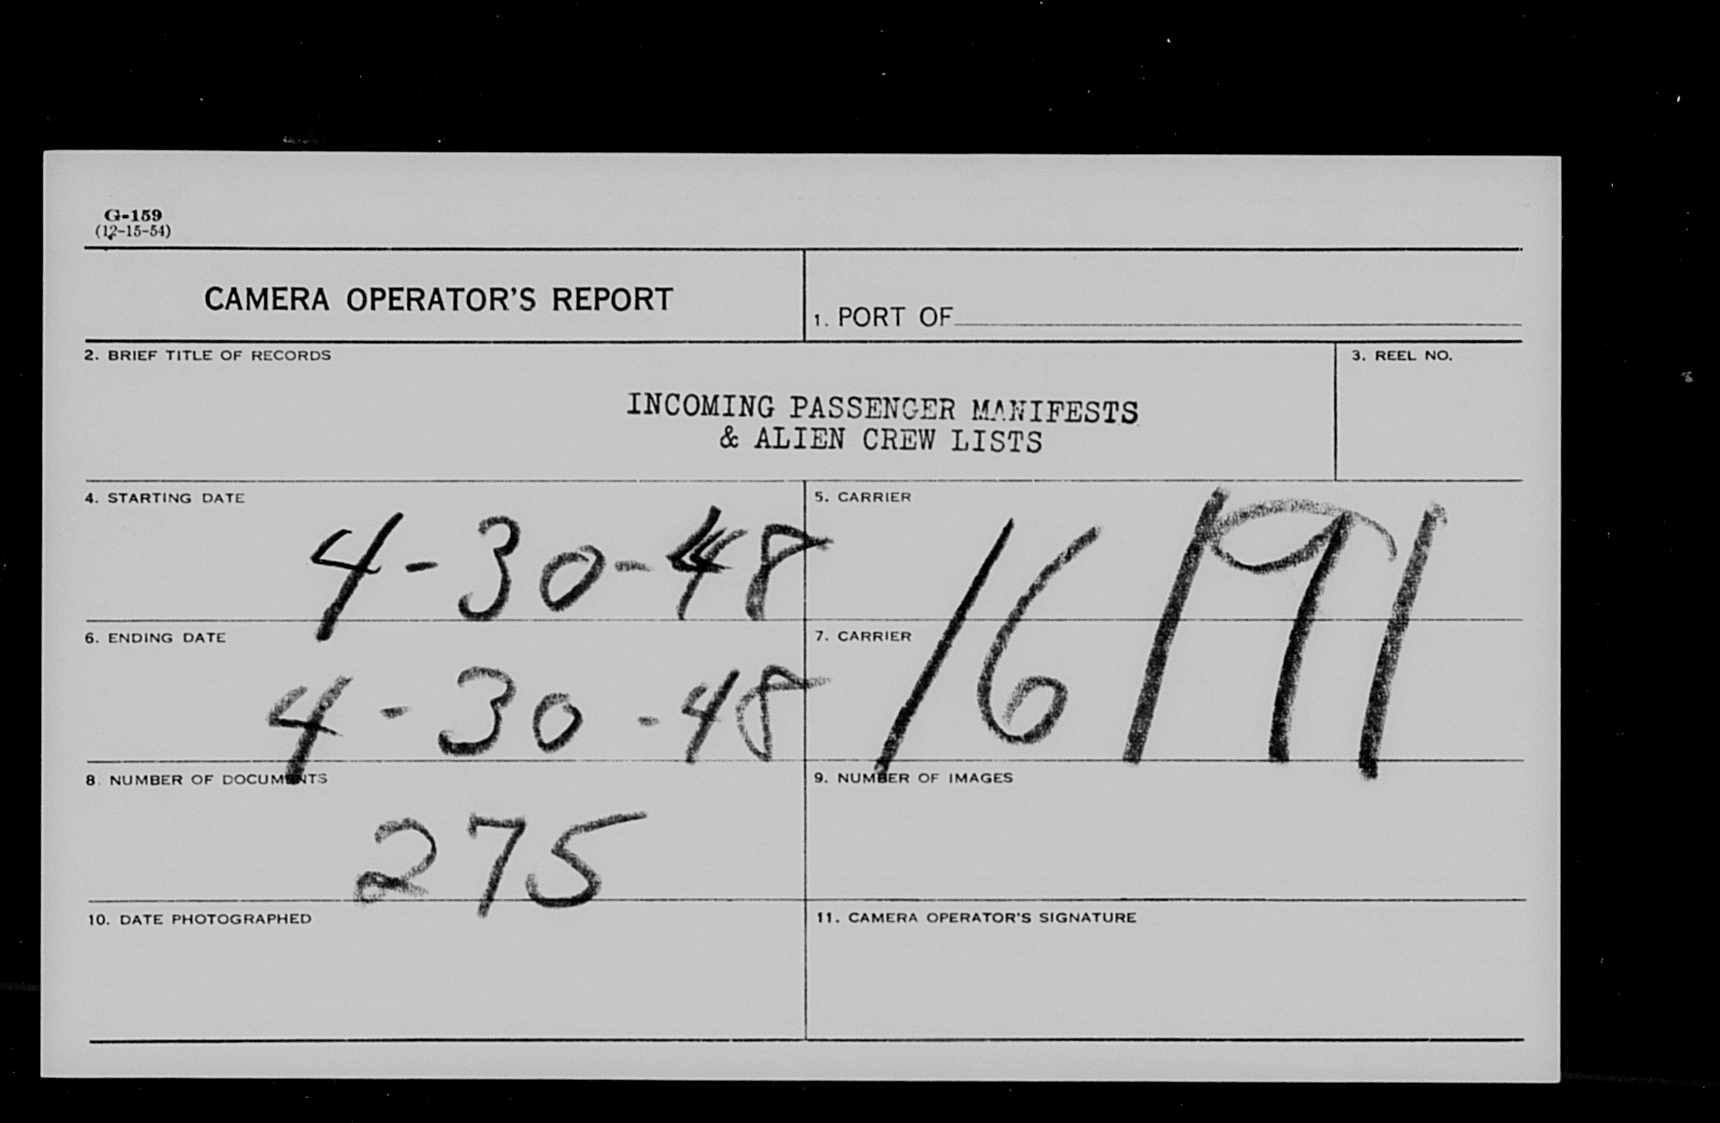 G-159
(12-15-54)
CAMERA OPERATOR'S REPORT
1. PORT OF
2. BRIEF TITLE OF RECORDS
3. REEL NO.
INCOMING PASSENGER MANIFESTS
& ALIEN CREW LISTS
4. STARTING DATE
4-30-48
5. CARRIER
16191
6. ENDING DATE
4-30-48
7. CARRIER
8. NUMBER OF DOCUMENTS
275
9. NUMBER OF IMAGES
10. DATE PHOTOGRAPHED
11. CAMERA OPERATOR'S SIGNATURE